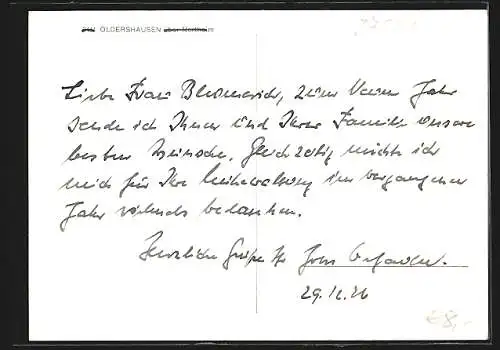 OLDERSHAUSEN über Northeim
Liebe Frau, zum Neuen Jahr
sende ich Ihnen und Ihrer Familie unsere
besten Wünsche. Gleichzeitig möchte ich
mich für Ihre Mühewaltung im vergangenen
Jahr vielmals bedanken.
Herzliche Grüße Ihr
29.12.76
€8,-